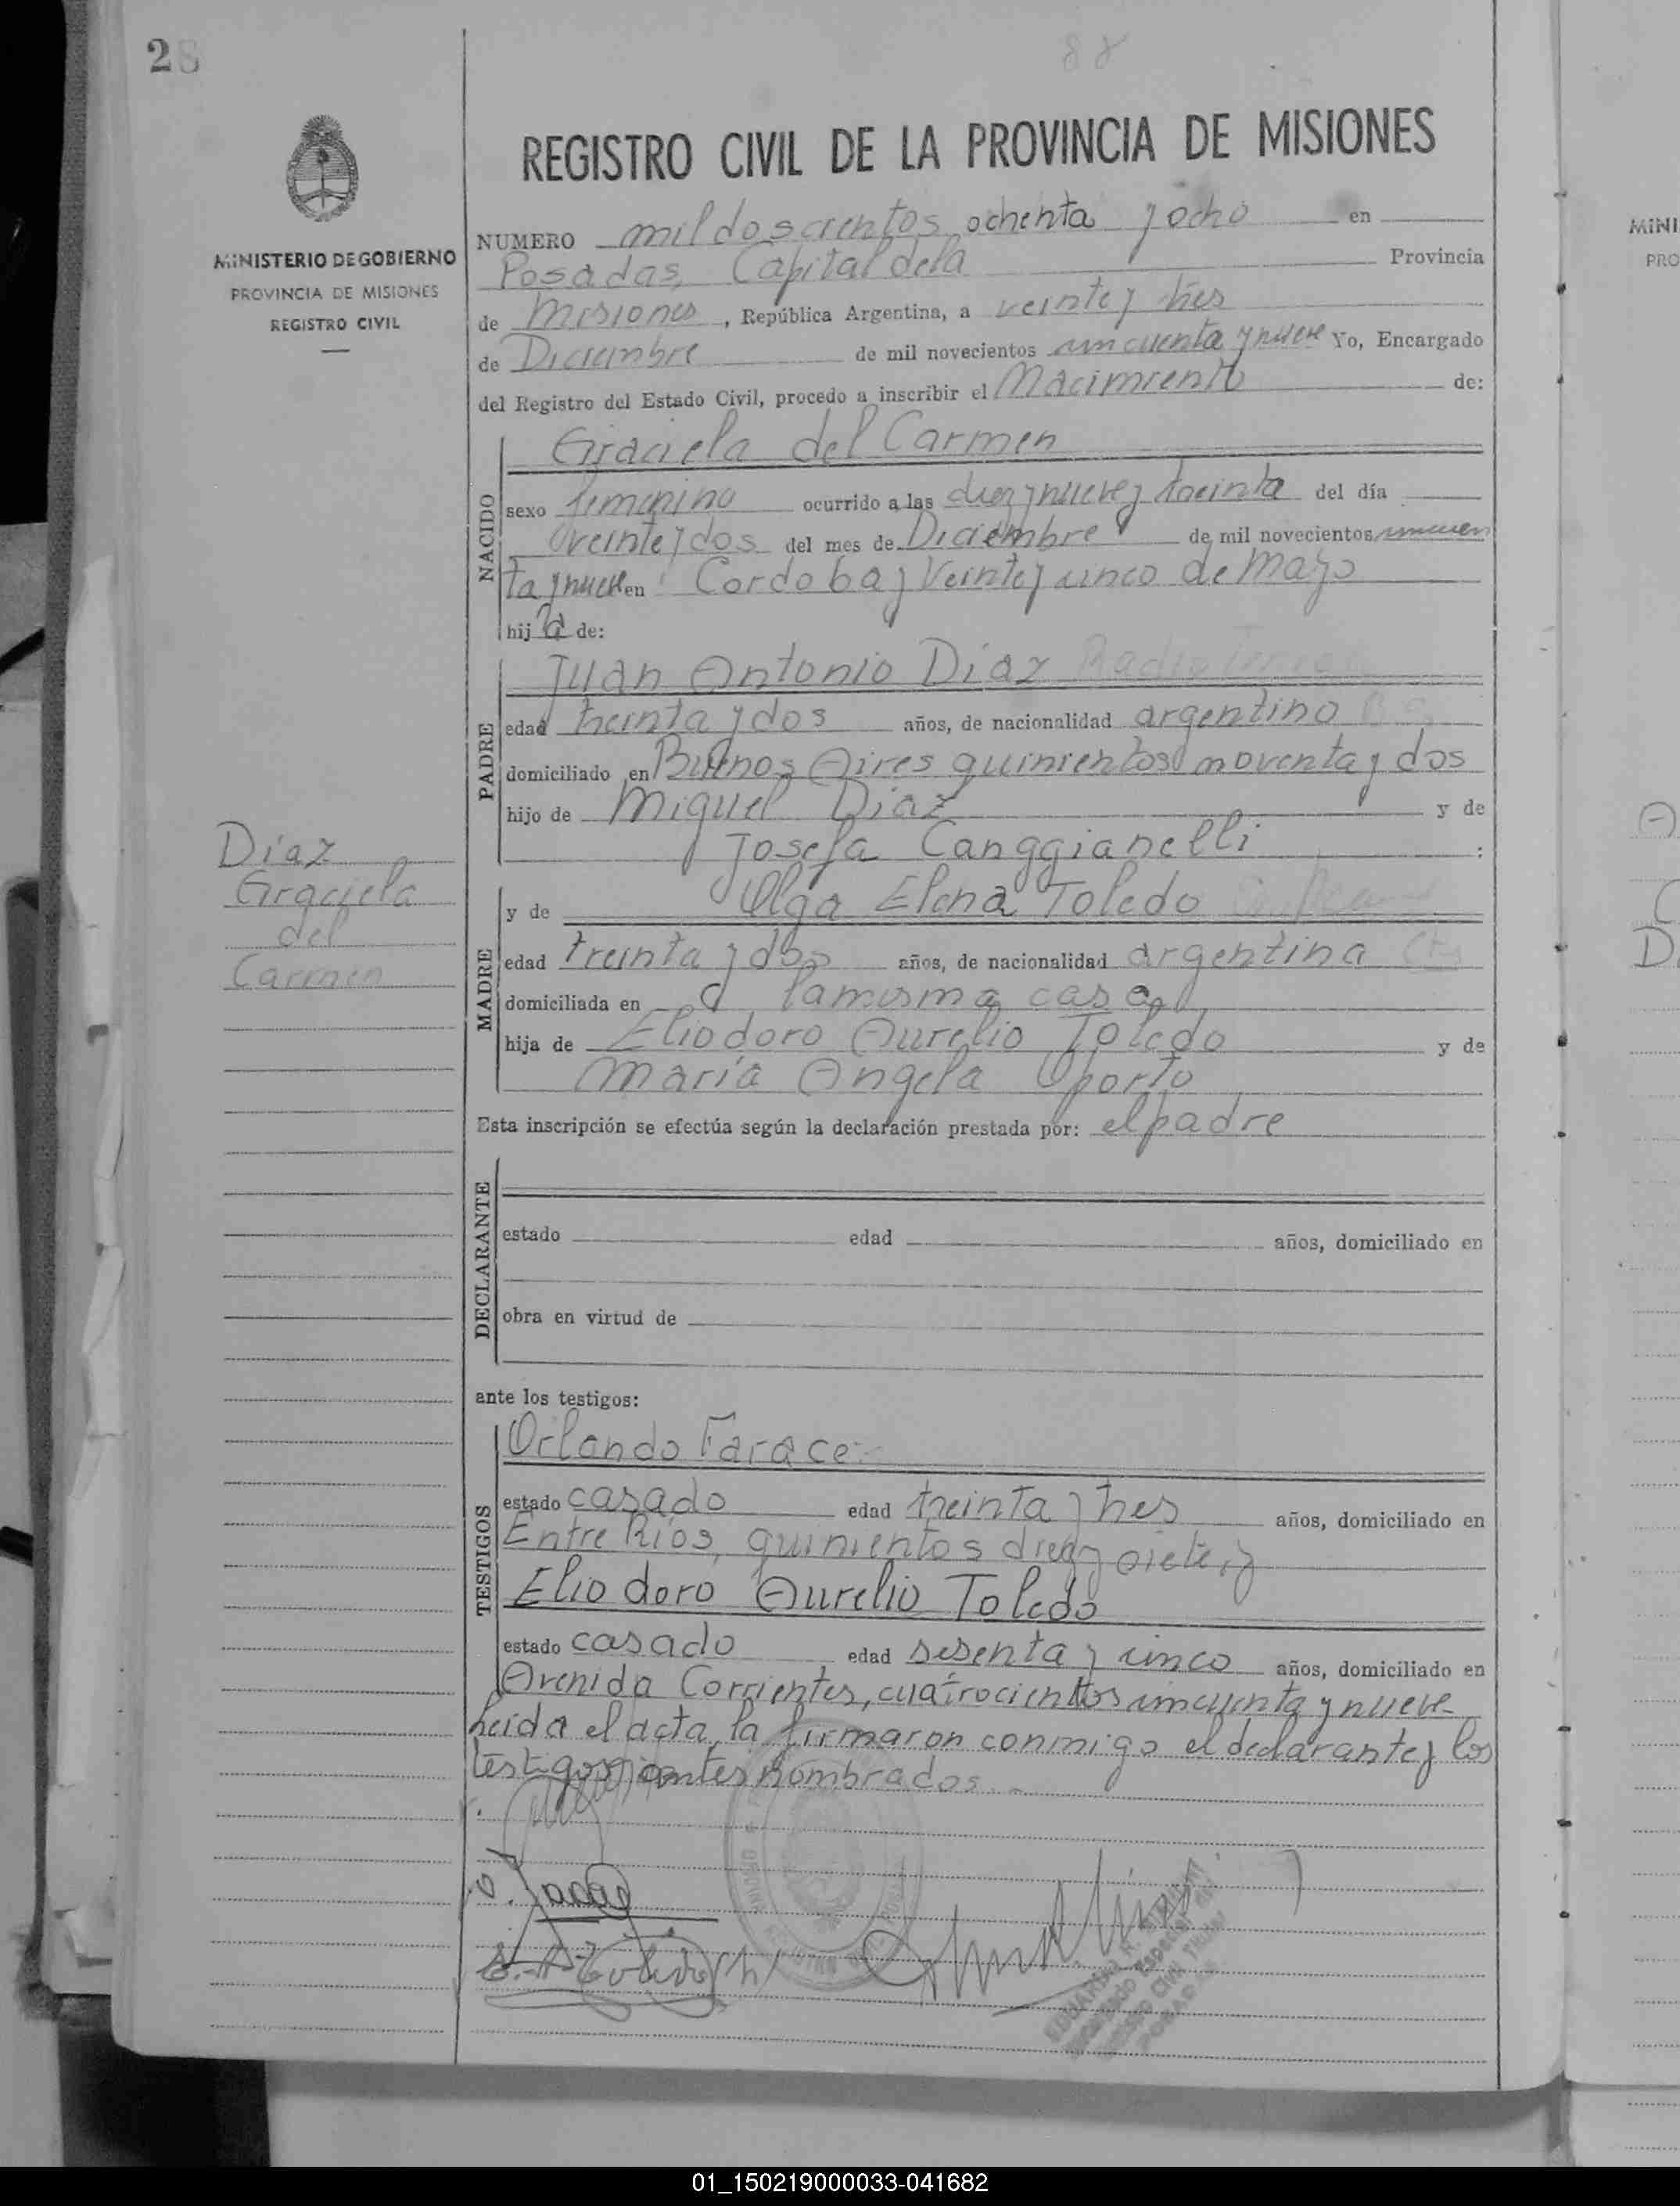 28
88
REGISTRO CIVIL DE LA PROVINCIA DE MISIONES
MINISTERIO DE GOBIERNO
PROVINCIA DE MISIONES
REGISTRO CIVIL
NUMERO mil doscientos ochenta y ocho en
Posadas, Capital de la Provincia
de Misiones, República Argentina, a veinte y tres
de Diciembre de mil novecientos cincuenta y nueve Yo, Encargado
del Registro del Estado Civil, procedo a inscribir el Nacimiento de:
NACIDO
Graciela del Carmen
sexo femenino ocurrido a las diez y nueve y treinta del día
veinte y dos del mes de Diciembre de mil novecientos cincuen
ta y nueve en Cordoba y Veinte y cinco de Mayo
hija de:
PADRE
Juan Antonio Diaz Radio
edad treinta y dos años, de nacionalidad argentino
domiciliado en Buenos Aires quinientos noventa y dos
hijo de Miguel Diaz y de
Josefa Canggianelli :
Diaz
Graciela
del
Carmen
MADRE
y de Olga Elena Toledo
edad treinta y dos años, de nacionalidad argentina
domiciliada en la misma casa
hija de Eliodoro Aurelio Toledo y de
María Angela Oporto
Esta inscripción se efectúa según la declaración prestada por: el padre
DECLARANTE
estado edad años, domiciliado en
obra en virtud de
ante los testigos:
TESTIGOS
Orlando Farace
estado casado edad treinta y tres años, domiciliado en
Entre Rios, quinientos diez y siete, y
Eliodoro Aurelio Toledo
estado casado edad sesenta y cinco años, domiciliado en
Avenida Corrientes, cuatrocientos cincuenta y nueve
Leida el acta, la firmaron conmigo el declarante y los
testigos antes nombrados.
REGISTRO CIVIL
MINI
PRO
01_150219000033-041682